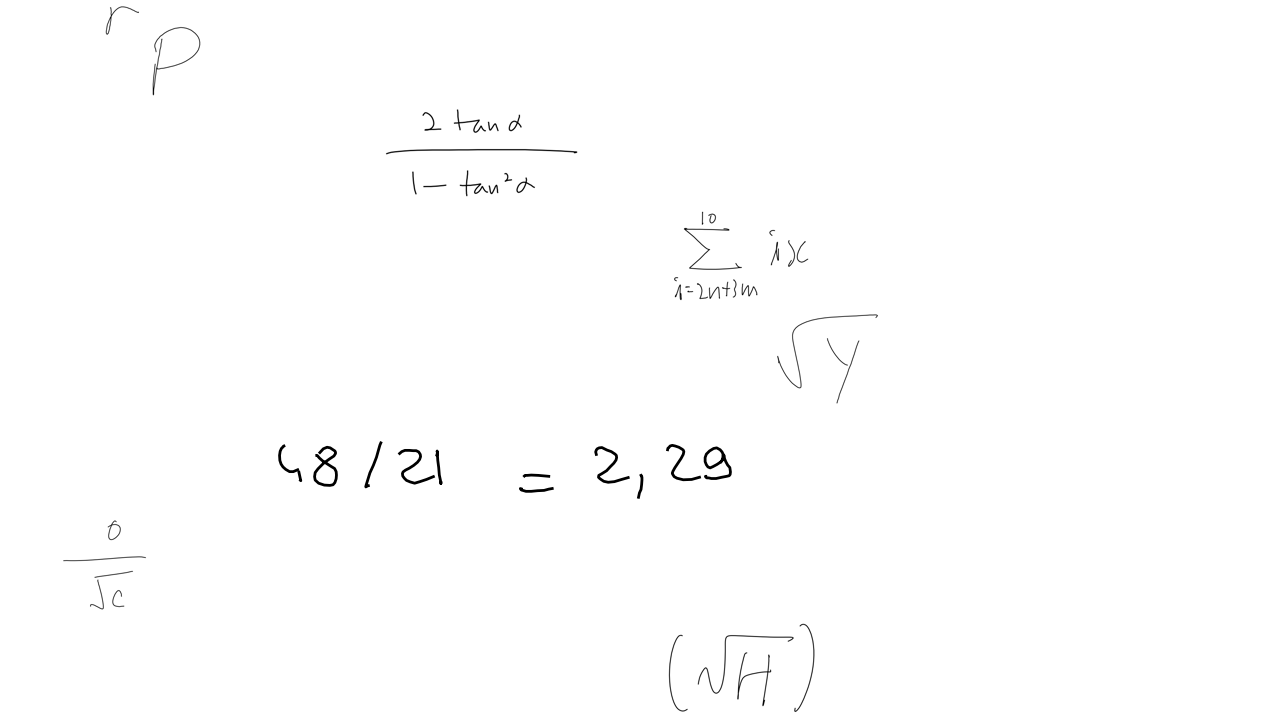 r
p
\frac{2 \tan \alpha}{1 - \tan^2 \alpha}
\sum_{i=2n+3m}^{10} ix
\sqrt{y}
48/21 = 2,29
\frac{0}{\sqrt{c}}
(\sqrt{H})